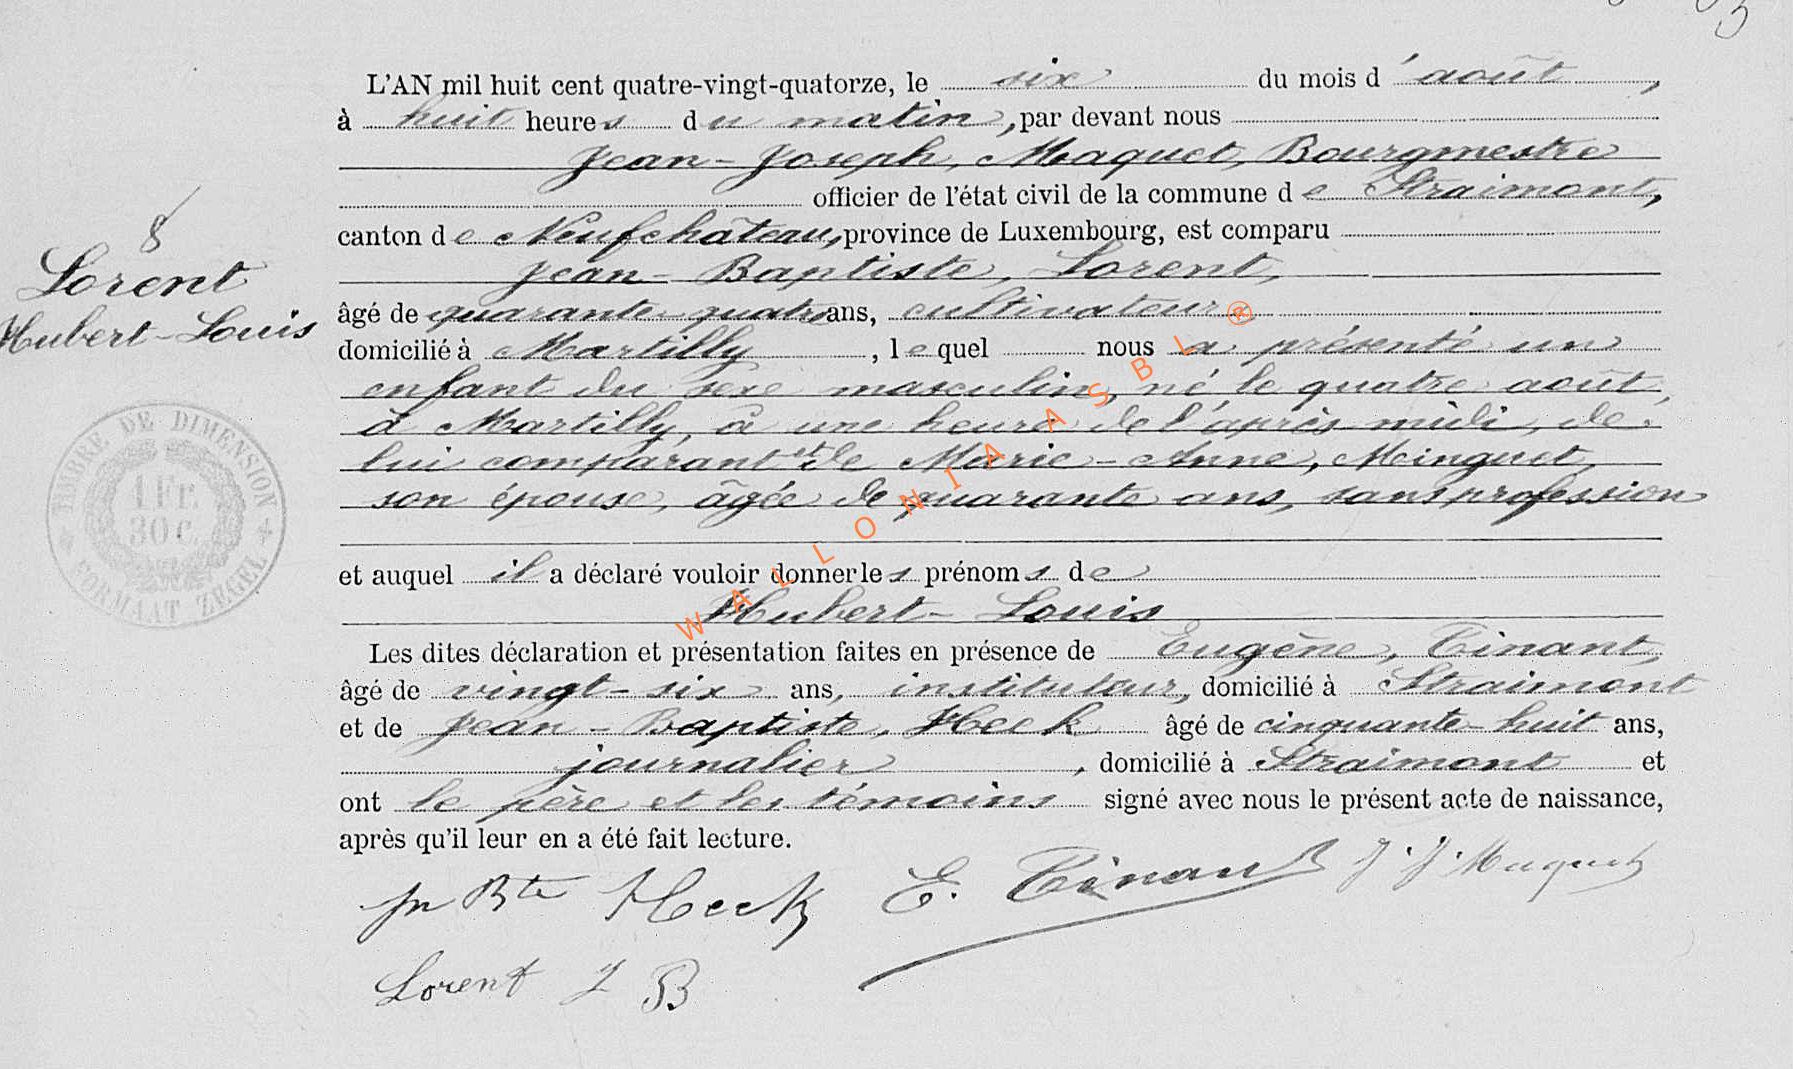 L'AN mil huit cent quatre-vingt-quatorze, le six du mois d'août,
à huit heures du matin, par devant nous
Jean-Joseph, Maquet, Bourgmestre
officier de l'état civil de la commune de Straimont,
canton de Neufchâteau, province de Luxembourg, est comparu
Jean-Baptiste, Lorent,
âgé de quarante-quatre ans, cultivateur,
domicilié à Martilly, lequel nous a présenté un
enfant du sexe masculin, né le quatre août,
à Martilly, à une heure de l'après midi, de
lui comparant et de Marie-Anne, Minguet,
son épouse, âgée de quarante ans, sans profession
et auquel il a déclaré vouloir donner les prénoms de
Hubert-Louis
Les dites déclaration et présentation faites en présence de Eugène, Tinant,
âgé de vingt-six ans, instituteur, domicilié à Straimont
et de Jean-Baptiste, Heck âgé de cinquante-huit ans,
journalier, domicilié à Straimont et
ont le père et les témoins signé avec nous le présent acte de naissance,
après qu'il leur en a été fait lecture.
Jn Bte Heck E. Tinant J. J. Maquet
Lorent J B
8
Lorent
Hubert-Louis
TIMBRE DE DIMENSION
1 Fr.
30 C.
FORMAAT ZEGEL
WALLONIA ASBL ®